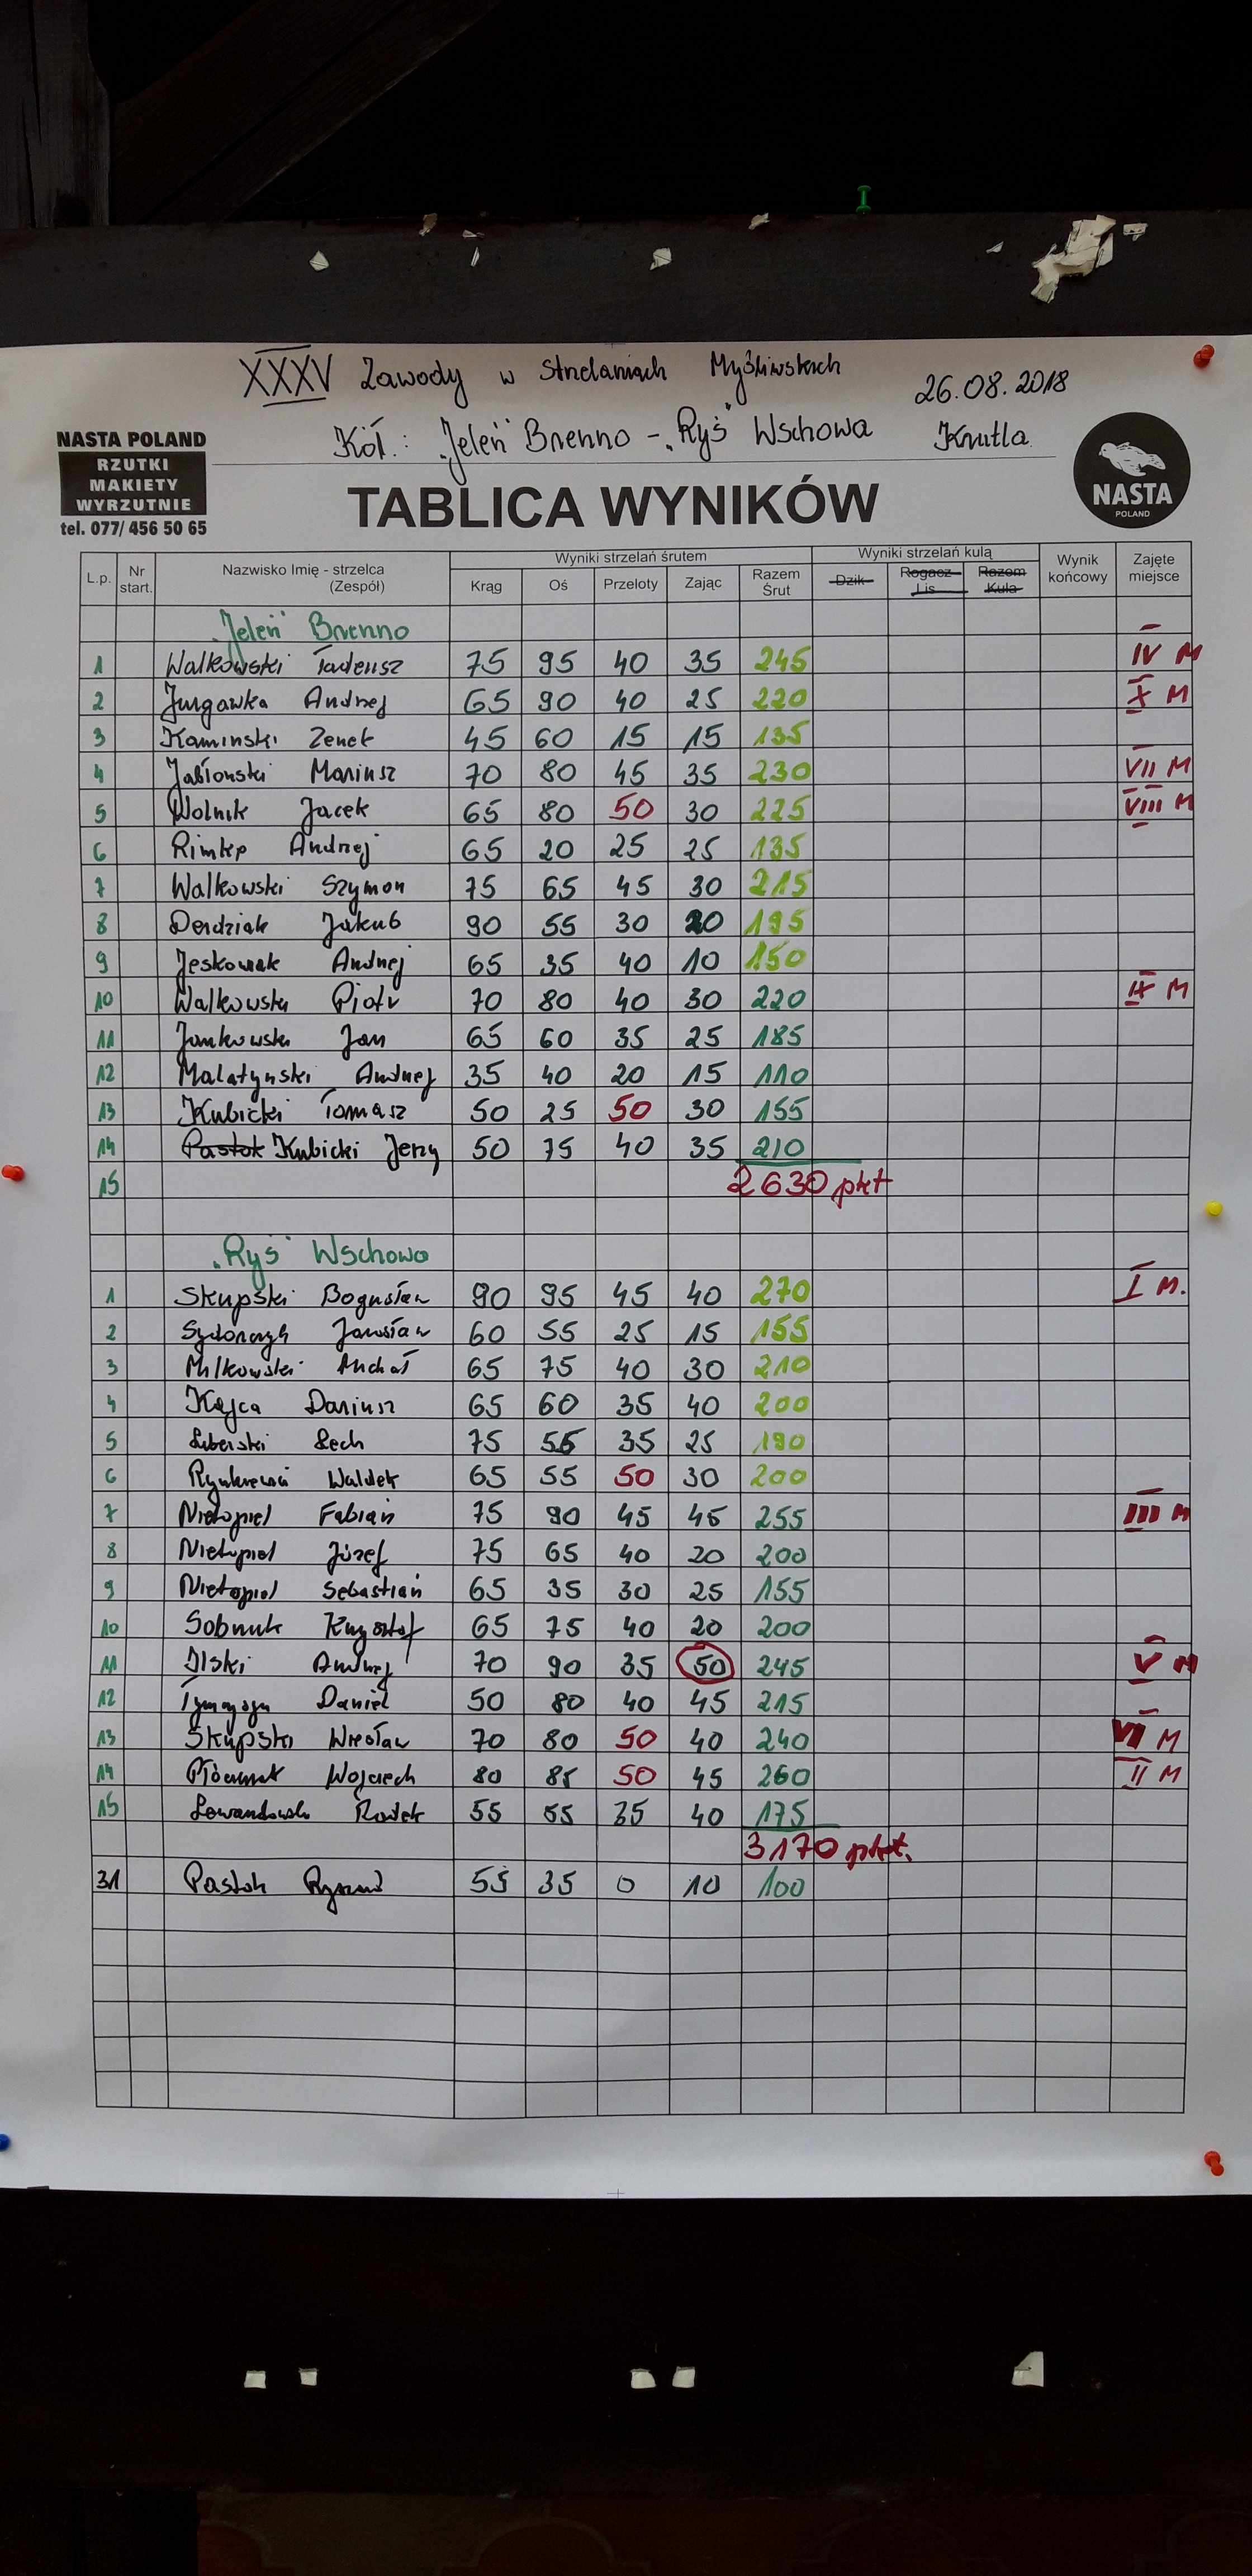 XXXV Zawody w Strzelaniach Myśliwskich 26.08.2018
Kół: „Jeleń" Brenno - „Ryś" Wschowa Krutla
NASTA POLAND
RZUTKI
MAKIETY
WYRZUTNIE
tel. 077/ 456 50 65
NASTA
POLAND
TABLICA WYNIKÓW
L.p. Nr start. Nazwisko Imię - strzelca (Zespół) Wyniki strzelań śrutem Wyniki strzelań kulą Wynik końcowy Zajęte miejsce
Krąg Oś Przeloty Zając Razem Śrut Dzik Rogacz Lis Razem Kula
„Jeleń" Brenno
1 Walkowski Tadeusz 75 95 40 35 245 IV M
2 Jurgawka Andrzej 65 90 40 25 220 X M
3 Kaminski Zenek 45 60 15 15 135
4 Jabłonski Mariusz 70 80 45 35 230 VII M
5 Wolnik Jacek 65 80 50 30 225 VIII M
6 Rimke Andrzej 65 20 25 25 135
7 Walkowski Szymon 75 65 45 30 215
8 Derdziak Jakub 90 55 30 20 195
9 Jeskowiak Andrzej 65 35 40 10 150
10 Walkowski Piotr 70 80 40 30 220 IX M
11 Jankowski Jan 65 60 35 25 185
12 Malatynski Andrzej 35 40 20 15 110
13 Kubicki Tomasz 50 25 50 30 155
14 Pastok Kubicki Jerzy 50 75 40 35 210
15 2630 pkt
„Ryś" Wschowa
1 Skupski Bogusław 90 95 45 40 270 I M.
2 Jarosław 60 55 25 15 155
3 Milkowski Michał 65 75 40 30 210
4 Kajca Dariusz 65 60 35 40 200
5 Liberski Lech 75 55 35 25 190
6 Waldek 65 55 50 30 200
7 Nietopiel Fabian 75 90 45 45 255 III M
8 Nietopiel Józef 75 65 40 20 200
9 Nietopiel Sebastian 65 35 30 25 155
10 Sobniuk Krzysztof 65 75 40 20 200
11 Ilski Andrzej 70 90 35 50 245 V M
12 Daniel 50 80 40 45 215
13 Skupski Wiesław 70 80 50 40 240 VI M
14 Wojciech 80 85 50 45 260 II M
15 Lewandowski Radek 55 55 35 40 175
3170 pkt.
31 Pastok 55 35 0 10 100